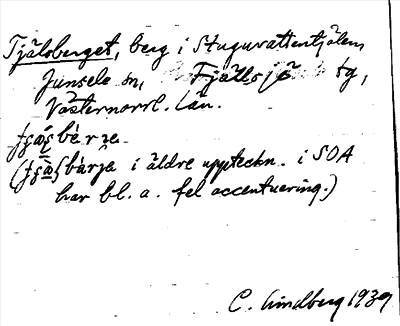 Tjälsberget, berg i Stuguvattentjälen,
Junsele sn, Fjällsjö tg,
Västernorrl. län.
(
bärja i äldre uppteckn. i SOA
har bl. a. fel accentuering.)
C. Lindberg 1939